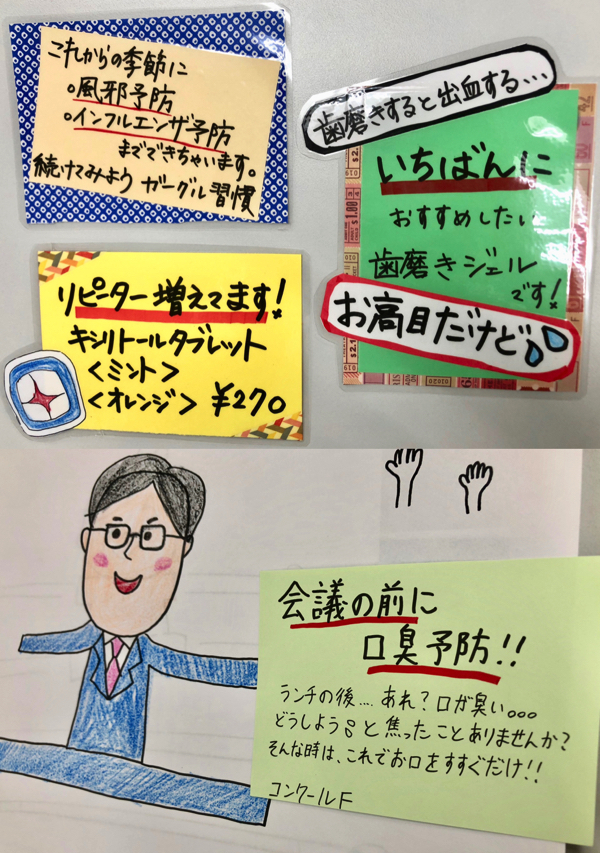 これからの季節に
○風邪予防
○インフルエンザ予防
までできちゃいます。
続けてみよう ガーグル習慣
歯磨きすると出血する・・・
いちばんに
おすすめしたい
歯磨きジェル
です!
お高目だけど
リピーター増えてます!
キシリトールタブレット
<ミント>
<オレンジ> ¥270
会議の前に
口臭予防!!
ランチの後…. あれ?口が臭い。。。
どうしよう と焦ったことありませんか?
そんな時は、これでお口をすすぐだけ!!
コンクールF